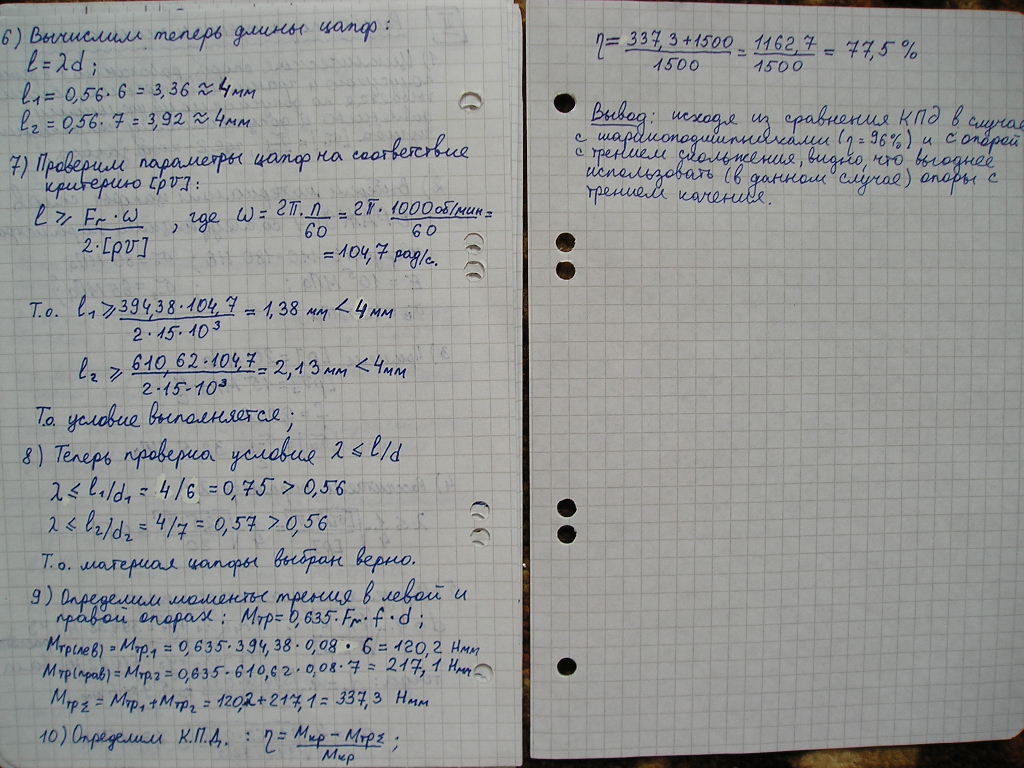 6) Вычислим теперь длины цапф:
l = λd;
l₁ = 0,56·6 = 3,36 ≈ 4мм
l₂ = 0,56·7 = 3,92 ≈ 4мм
7) Проверим параметры цапф на соответствие
критерию [pv]:
l ≥ Fr·ω / 2·[pv] , где ω = 2π·n/60 = 2π·1000 об/мин/60 =
= 104,7 рад/с.
Т.о. l₁ ≥ 394,38·104,7 / 2·15·10³ = 1,38 мм < 4 мм
l₂ ≥ 610,62·104,7 / 2·15·10³ = 2,13 мм < 4мм
Т.о. условие выполняется;
8) Теперь проверка условие λ ≤ l/d
λ ≤ l₁/d₁ = 4/6 = 0,75 > 0,56
λ ≤ l₂/d₂ = 4/7 = 0,57 > 0,56
Т.о. материал цапфы выбран верно.
9) Определим моменты трения в левой и
правой опорах: Mтр = 0,635·Fr·f·d;
Mтр(лев) = Mтр₁ = 0,635·394,38·0,08·6 = 120,2 Нмм
Mтр(прав) = Mтр₂ = 0,635·610,62·0,08·7 = 217,1 Нмм
MтрΣ = Mтр₁ + Mтр₂ = 120,2 + 217,1 = 337,3 Нмм
10) Определим К.П.Д. : η = Mкр − MтрΣ / Mкр ;
η = 337,3+1500 / 1500 = 1162,7 / 1500 = 77,5 %
Вывод: исходя из сравнения КПД в случае
с шарикоподшипниками (η = 96%) и с опорой
с трением скольжения, видно, что выгоднее
использовать (в данном случае) опоры с
трением качения.